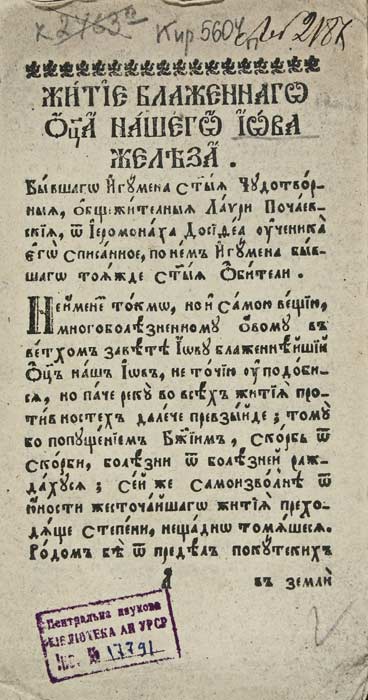 Кир 560
ЖИТІЕ БЛАЖЕННАГѠ
ОЦ҃А НАШЕГѠ ІѠВА
ЖЕЛѢЗА .
Бывшагѡ Игꙋмена С҃тыѧ Чꙋдотвор-
ныѧ, общежителныѧ Лаѵри Почаев-
скіѧ, ѿ Іеромонаха Досіѳеа оученика
егѡ Списанное, по немъ Игꙋмена бы-
вшагѡ тоѧжде С҃тыѧ Обители .
Не именем токмѡ, но и Самою вещію,
многоболѣзненномꙋ Ономꙋ въ
ветхомъ завѣтѣ Іѡвꙋ блаженнѣйшій
Оц҃ъ нашъ Іѡвъ, не точію оуподоби-
сѧ, но паче рекꙋ во всѣхъ житіѧ про-
тивностехъ далече превзыйде ; томꙋ
бо попꙋщеніемъ Бж҃іимъ, Скорбь ѿ
Скорби, болѣзни ѿ болѣзней раж-
дахꙋсѧ ; Сей же Самоизволнѣ ѿ
юности жесточайшагѡ житіѧ прехо-
дѧще Степени, нещаднѡ томѧшесѧ.
Родомъ бѣ ѿ предѣл покꙋтскихъ
въ земли
Центральна наукова
БІБЛІОТЕКА АН УРСР
Інв. № 17791